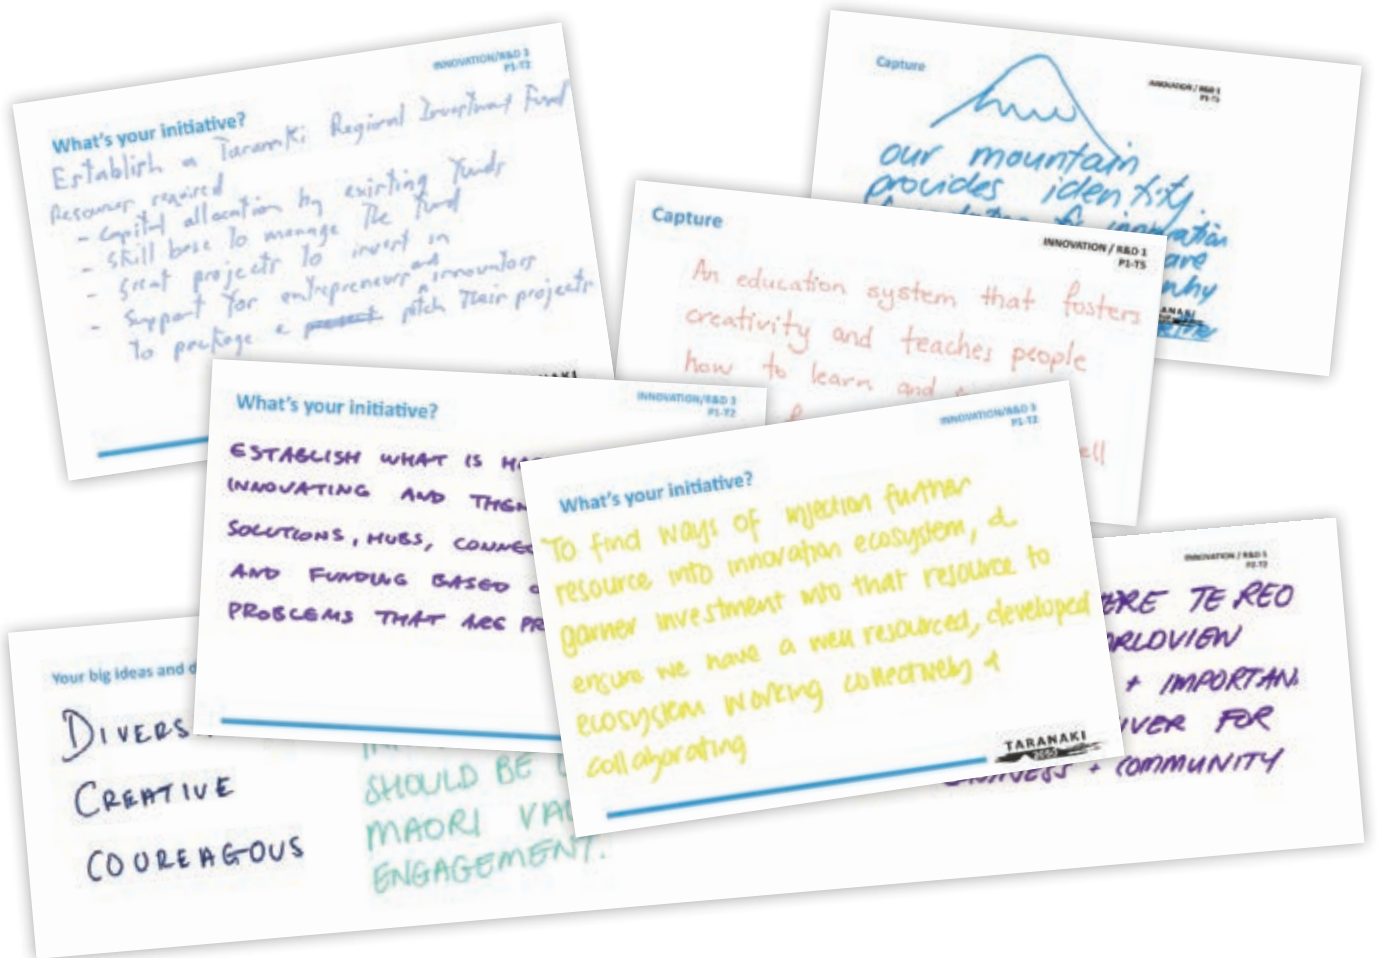 INNOVATION/R&D 3
P1-T2
What's your initiative?
Establish a Taranaki Regional Investment Fund
Resources required
- Capital allocation by existing funds
- Skill base to manage the fund
- Great projects to invest in
- Support for entrepreneurs and innovators
to package a pitch their projects
Capture
INNOVATION / R&D 1
P1-T5
our mountain
provides identity.
innovation
are
why
Capture
INNOVATION / R&D 1
P1-T5
An education system that fosters
creativity and teaches people
how to learn and
ell
What's your initiative?
INNOVATION/R&D 3
P1-T2
ESTABLISH WHAT IS
INNOVATING AND THEN
SOLUTIONS, HUBS, CONNEC
AND FUNDING BASED
PROBLEMS THAT ARE PR
INNOVATION/R&D 3
P1-T2
What's your initiative?
To find ways of injection further
resource into innovation ecosystem, &
garner investment into that resource to
ensure we have a well resourced, developed
ecosystem working collectively &
collaborating
TARANAKI
2050
Your big ideas and d
DIVERS
CREATIVE
COUREAGOUS
SHOULD BE
MAORI VA
ENGAGEMENT.
INNOVATION / R&D 1
P2-T2
ERE TE REO
RLDVIEW
+ IMPORTAN
IVER FOR
+ COMMUNITY